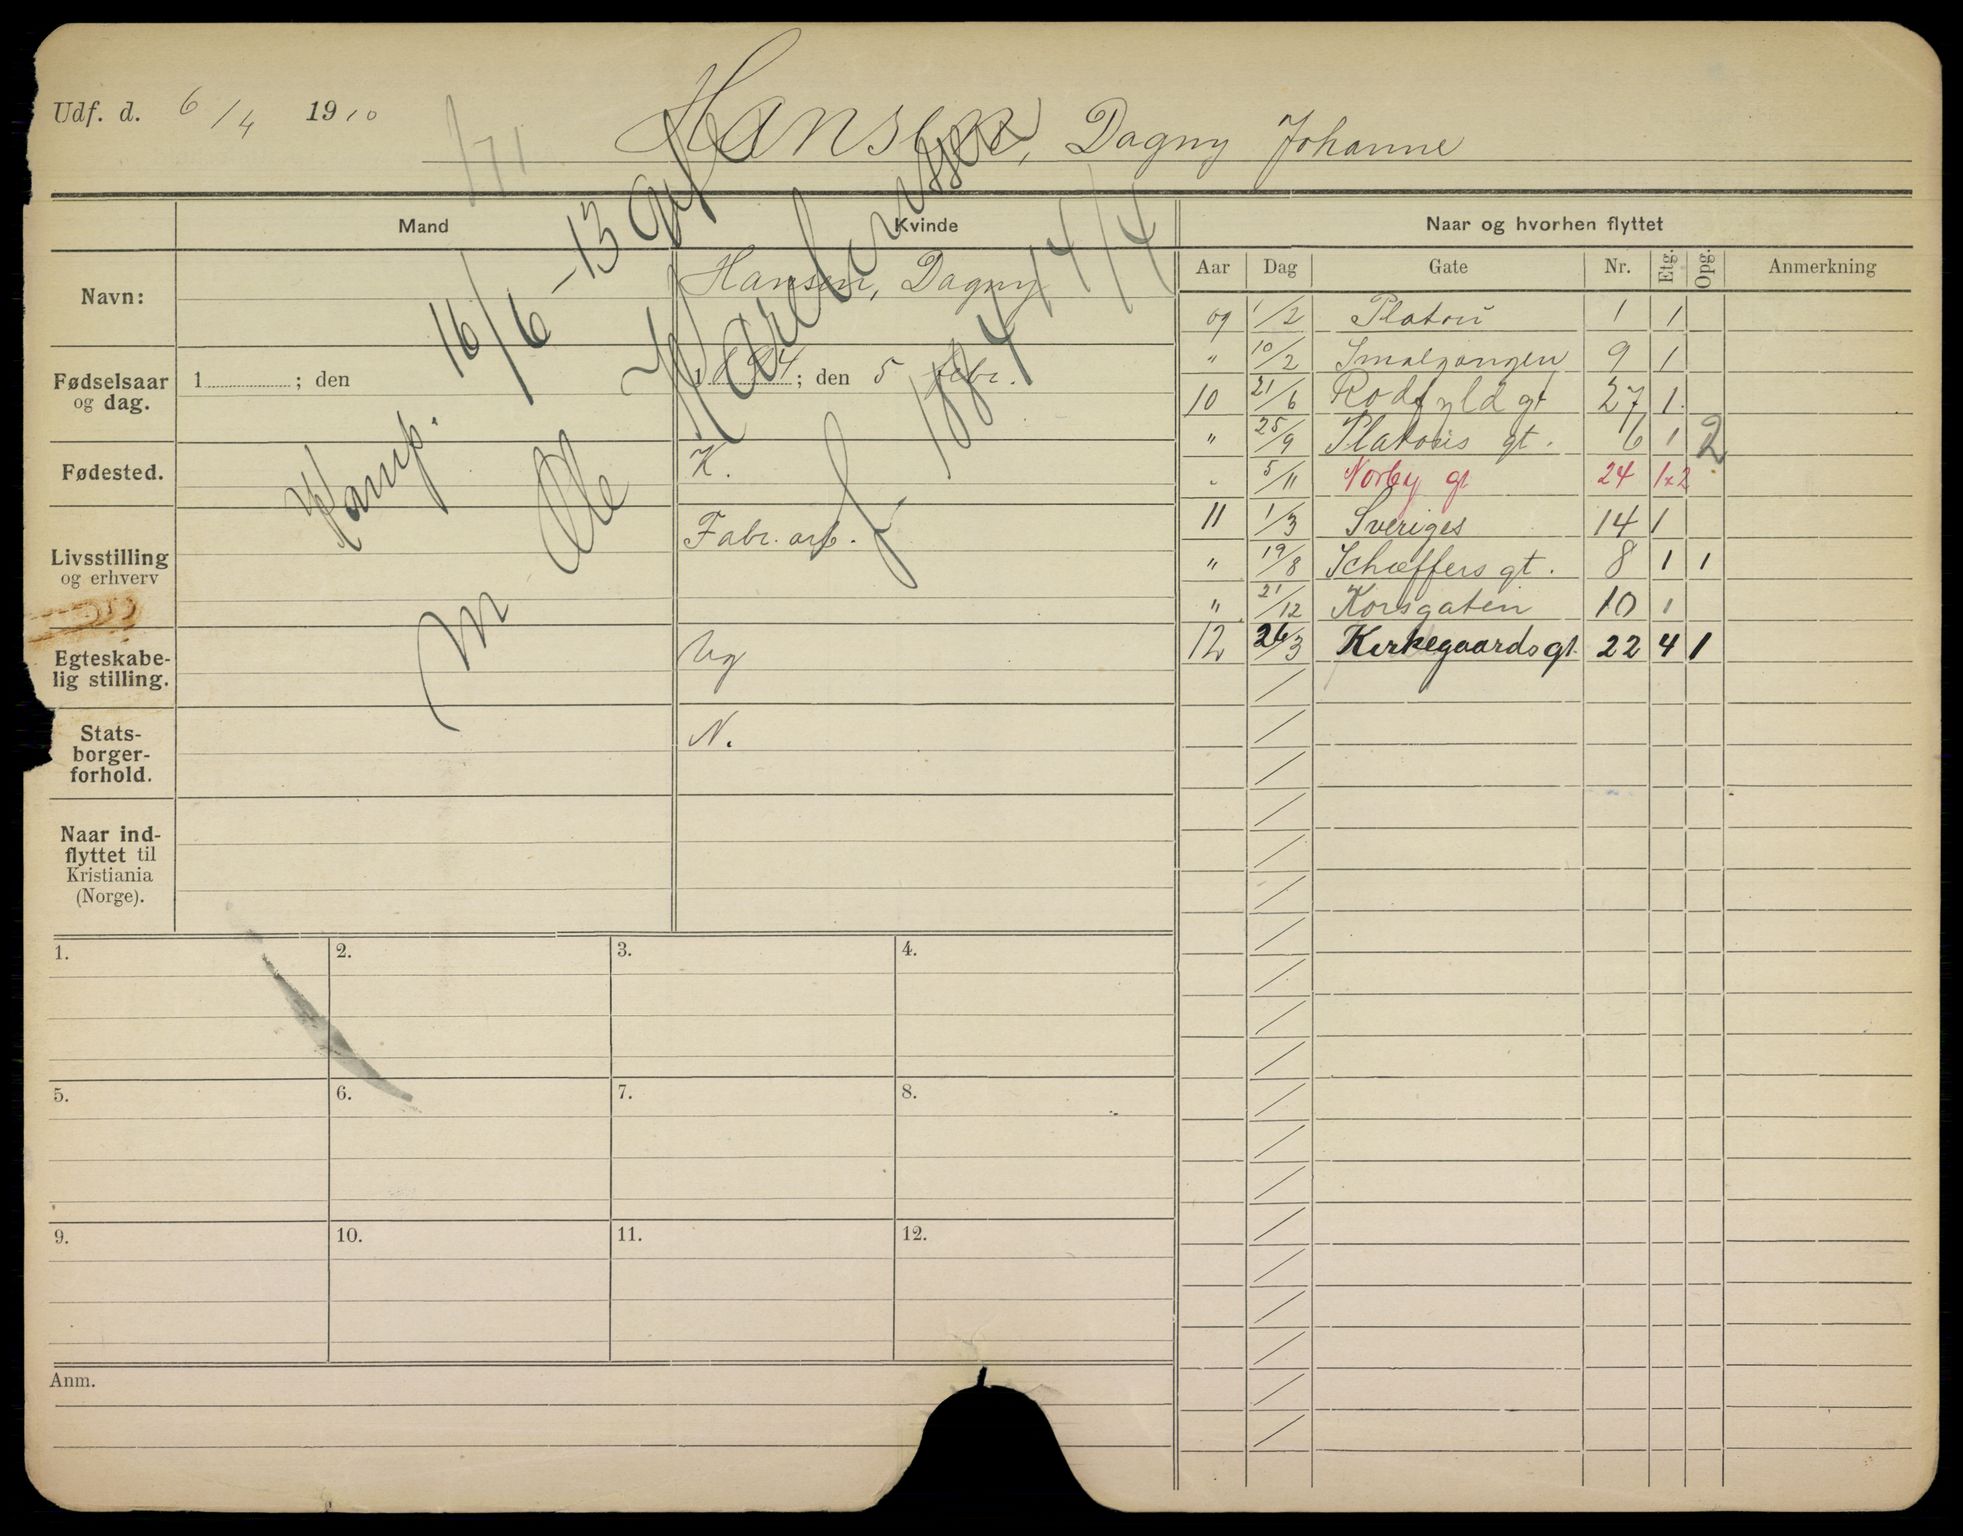 Udf. d. 6/4 1910
Hansen, Dagny Johanne
Mand
Kvinde
Naar og hvorhen flyttet
Aar Dag Gate Nr. Etg. Opg. Anmerkning
Navn:
Hansen, Dagny
Fødselsaar
og dag.
1 ; den
1894; den 5 febr.
Fødested.
K.
Livsstilling
og erhverv
Fabr. arb.
Egteskabe-
lig stilling.
Ug
Stats-
borger-
forhold.
N.
Naar ind-
flyttet til
Kristiania
(Norge).
Kamp. 16/6 - 13 gift
m Ole
f. 1884 14/4
09 1/2 Platou 1 1
" 10/2 Smalgangen 9 1
10 21/6 Rodfyld gt 27 1.
" 25/9 Platous gt. 6 1 2
" 5/11 Norby gt 24 1x2
11 1/3 Sveriges 14 1
" 19/8 Schæffers gt. 8 1 1
" 21/12 Korsgaten 10 1
12 26/3 Kirkegaardsgt. 22 4 1
1. 2. 3. 4.
5. 6. 7. 8.
9. 10. 11. 12.
Anm.